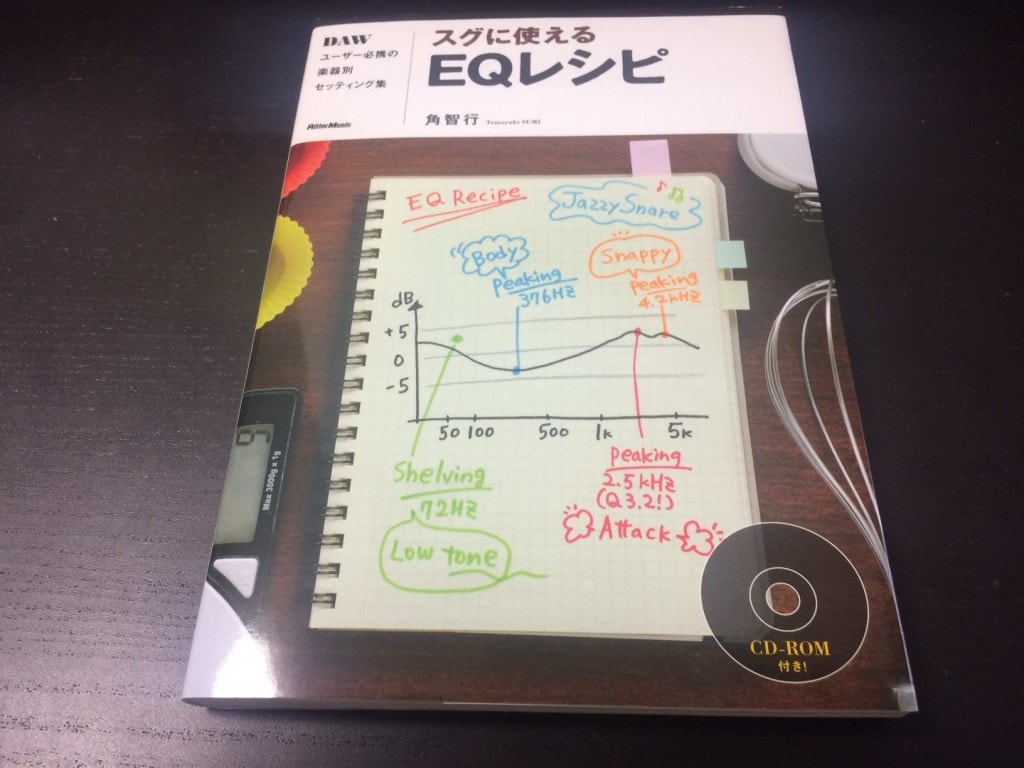 DAW
ユーザー必携の
楽器別
セッティング集
RittorMusic
スグに使える
EQレシピ
角智行 Tomoyuki SUMI
EQ Recipe
Jazzy Snare
Body
Peaking
376Hz
Snappy
Peaking
4.2kHz
dB
+5
0
-5
50 100 500 1k 5k
Shelving
72Hz
Low tone
Peaking
2.5kHz
(Q3.2!)
Attack
Max 3000g x 1g
CD-ROM
付き!